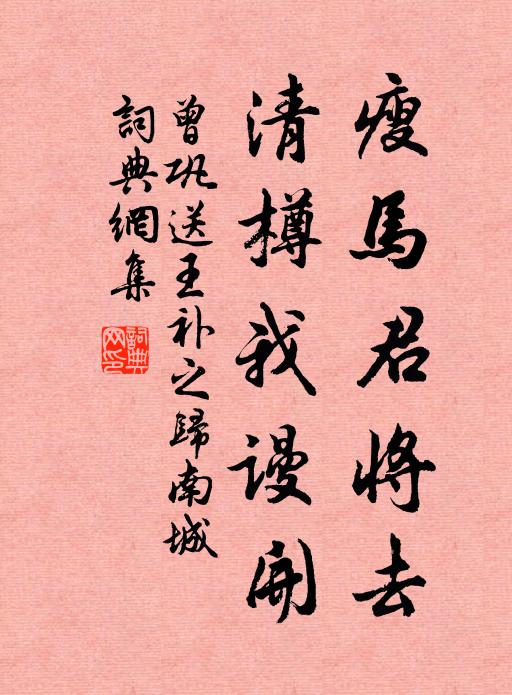 瘦馬君將去
清樽我謾開
曾巩送王补之歸南城
詞典網集
詞典网印